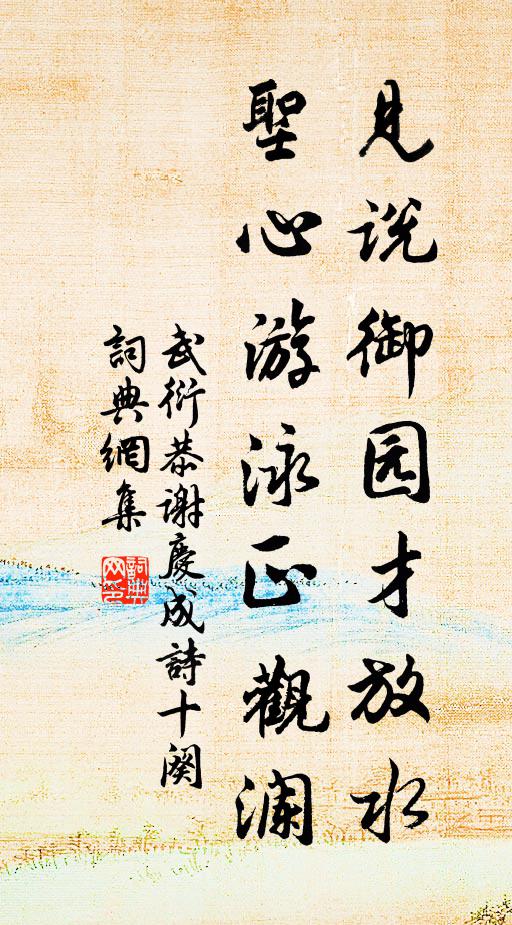 見说御园才放水
聖心游泳正觀澜
武衍恭谢慶成詩十闋
詞典網集
詞典